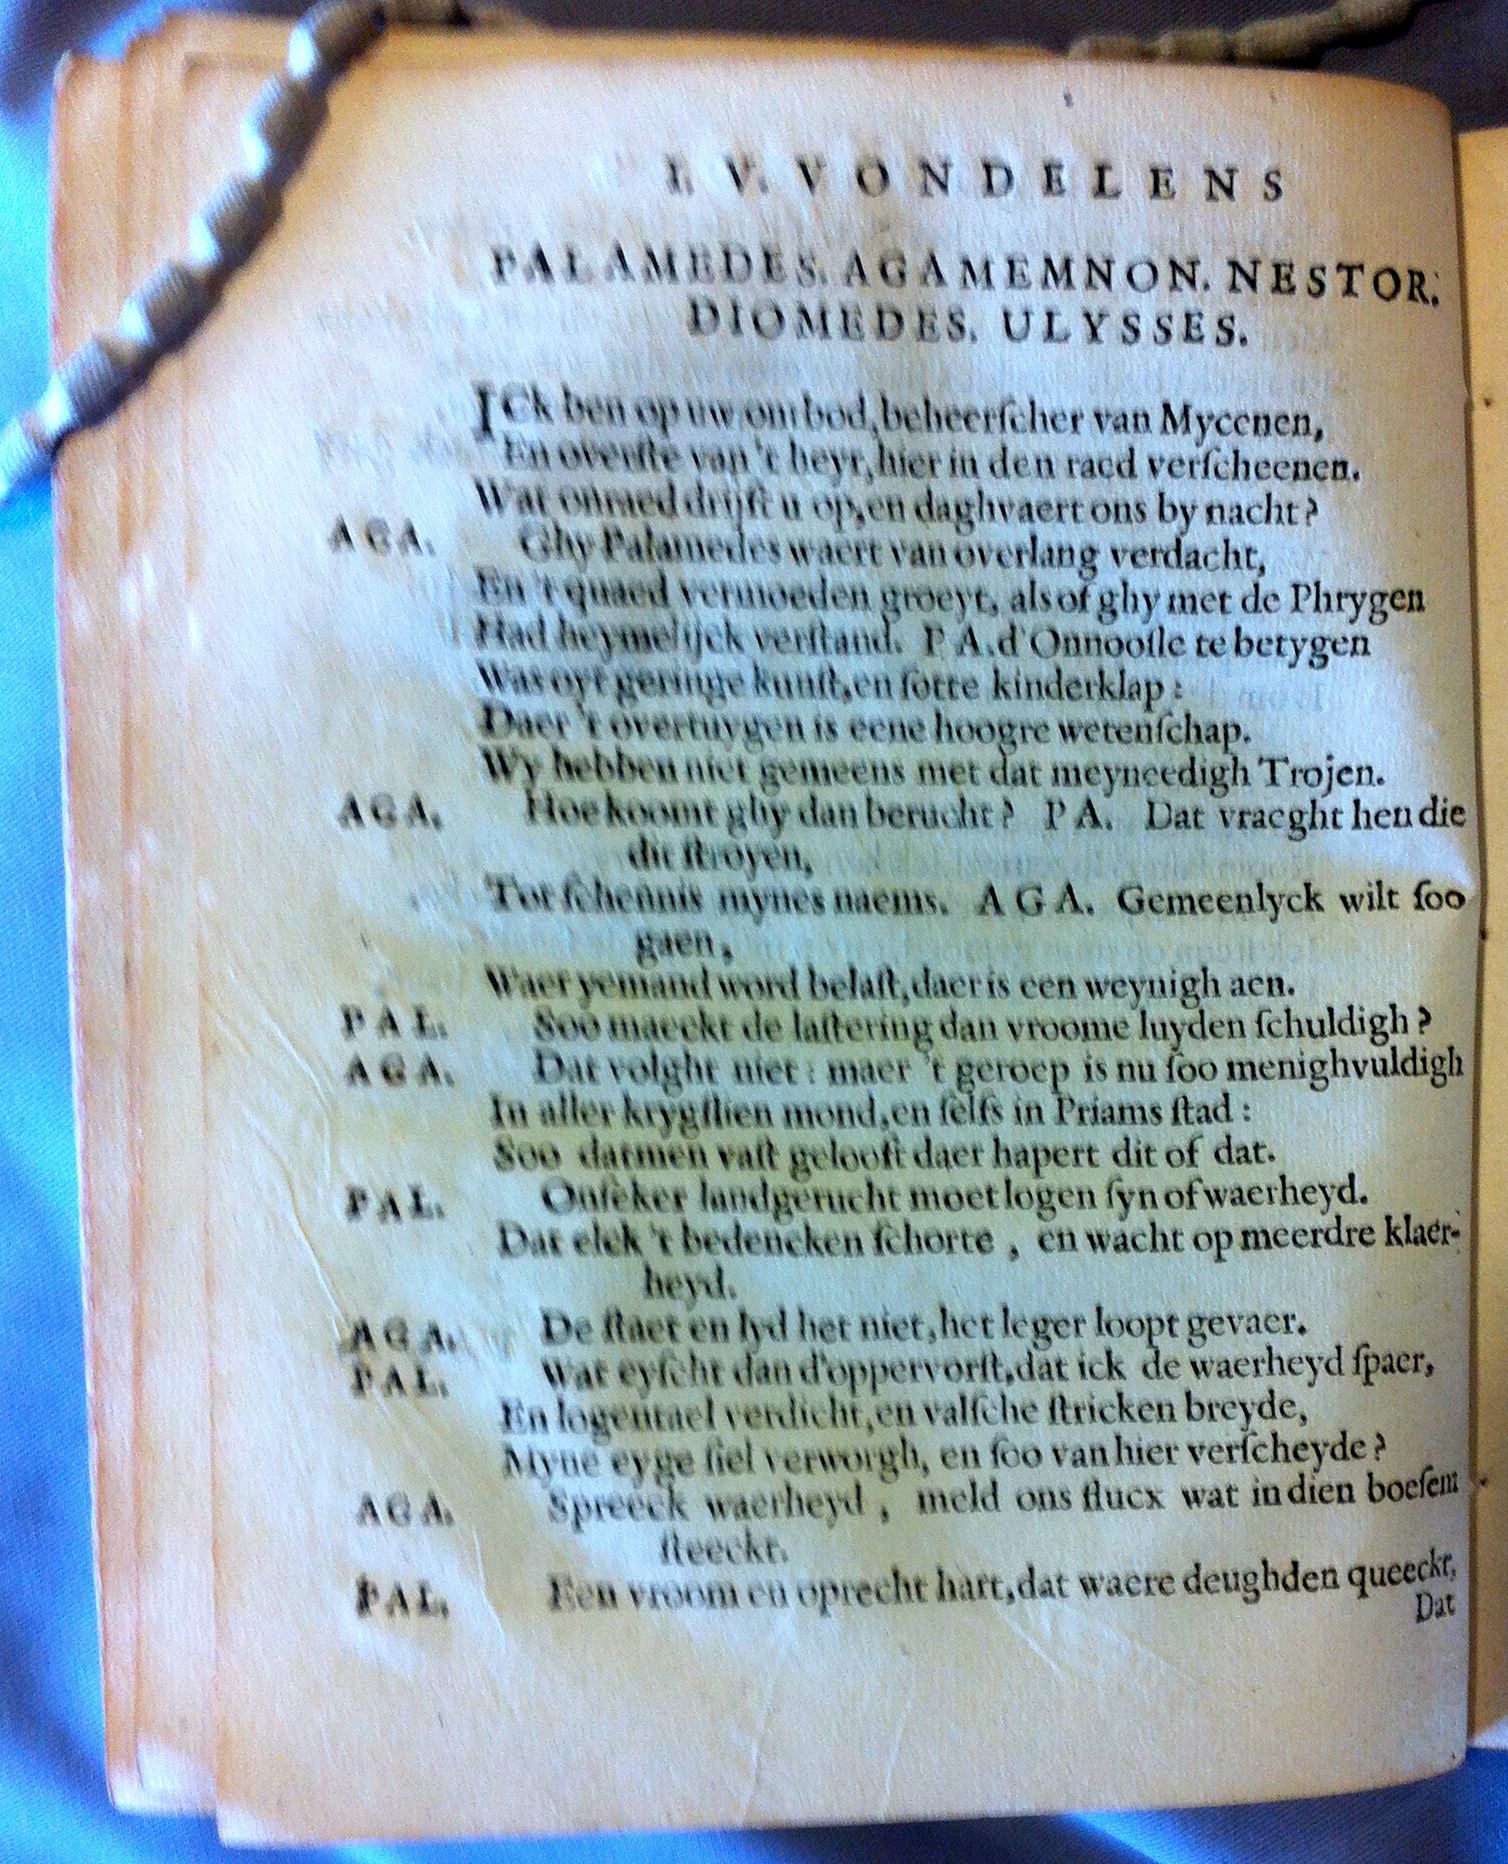 I. V. VONDELENS
PALAMEDES. AGAMEMNON. NESTOR.
DIOMEDES. ULYSSES.
ICk ben op uw ombod, beheerſcher van Mycenen,
En overſte van 't heyr, hier in den raed verſcheenen.
Wat onraed drijft u op, en daghvaert ons by nacht?
AGA. Ghy Palamedes waert van overlang verdacht,
En 't quaed vermoeden groeyt, als of ghy met de Phrygen
Had heymelijck verſtand. PA. d'Onnooſle te betygen
Was oyt geringe kunſt, en ſotte kinderklap:
Daer 't overtuygen is eene hoogre wetenſchap.
Wy hebben niet gemeens met dat meyneedigh Trojen.
AGA. Hoe koomt ghy dan berucht? PA. Dat vraeght hen die
dit ſtroyen,
Tot ſchennis mynes naems. AGA. Gemeenlyck wilt ſoo
gaen,
Waer yemand word belaſt, daer is een weynigh aen.
PAL. Soo maeckt de laſtering dan vroome luyden ſchuldigh?
AGA. Dat volght niet: maer 't geroep is nu ſoo menighvuldigh
In aller krygſlien mond, en ſelfs in Priams ſtad:
Soo datmen vaſt gelooft daer hapert dit of dat.
PAL. Onſeker landgerucht moet logen ſyn of waerheyd.
Dat elck 't bedencken ſchorte, en wacht op meerdre klaer-
heyd.
AGA. De ſtaet en lyd het niet, het leger loopt gevaer.
PAL. Wat eyſcht dan d'oppervorſt, dat ick de waerheyd ſpaer,
En logentael verdicht, en valſche ſtricken breyde,
Myne eyge ſiel verworgh, en ſoo van hier verſcheyde?
AGA. Spreeck waerheyd, meld ons flucx wat in dien boeſem
ſteeckt.
PAL. Een vroom en oprecht hart, dat waere deughden queeckt,
Dat